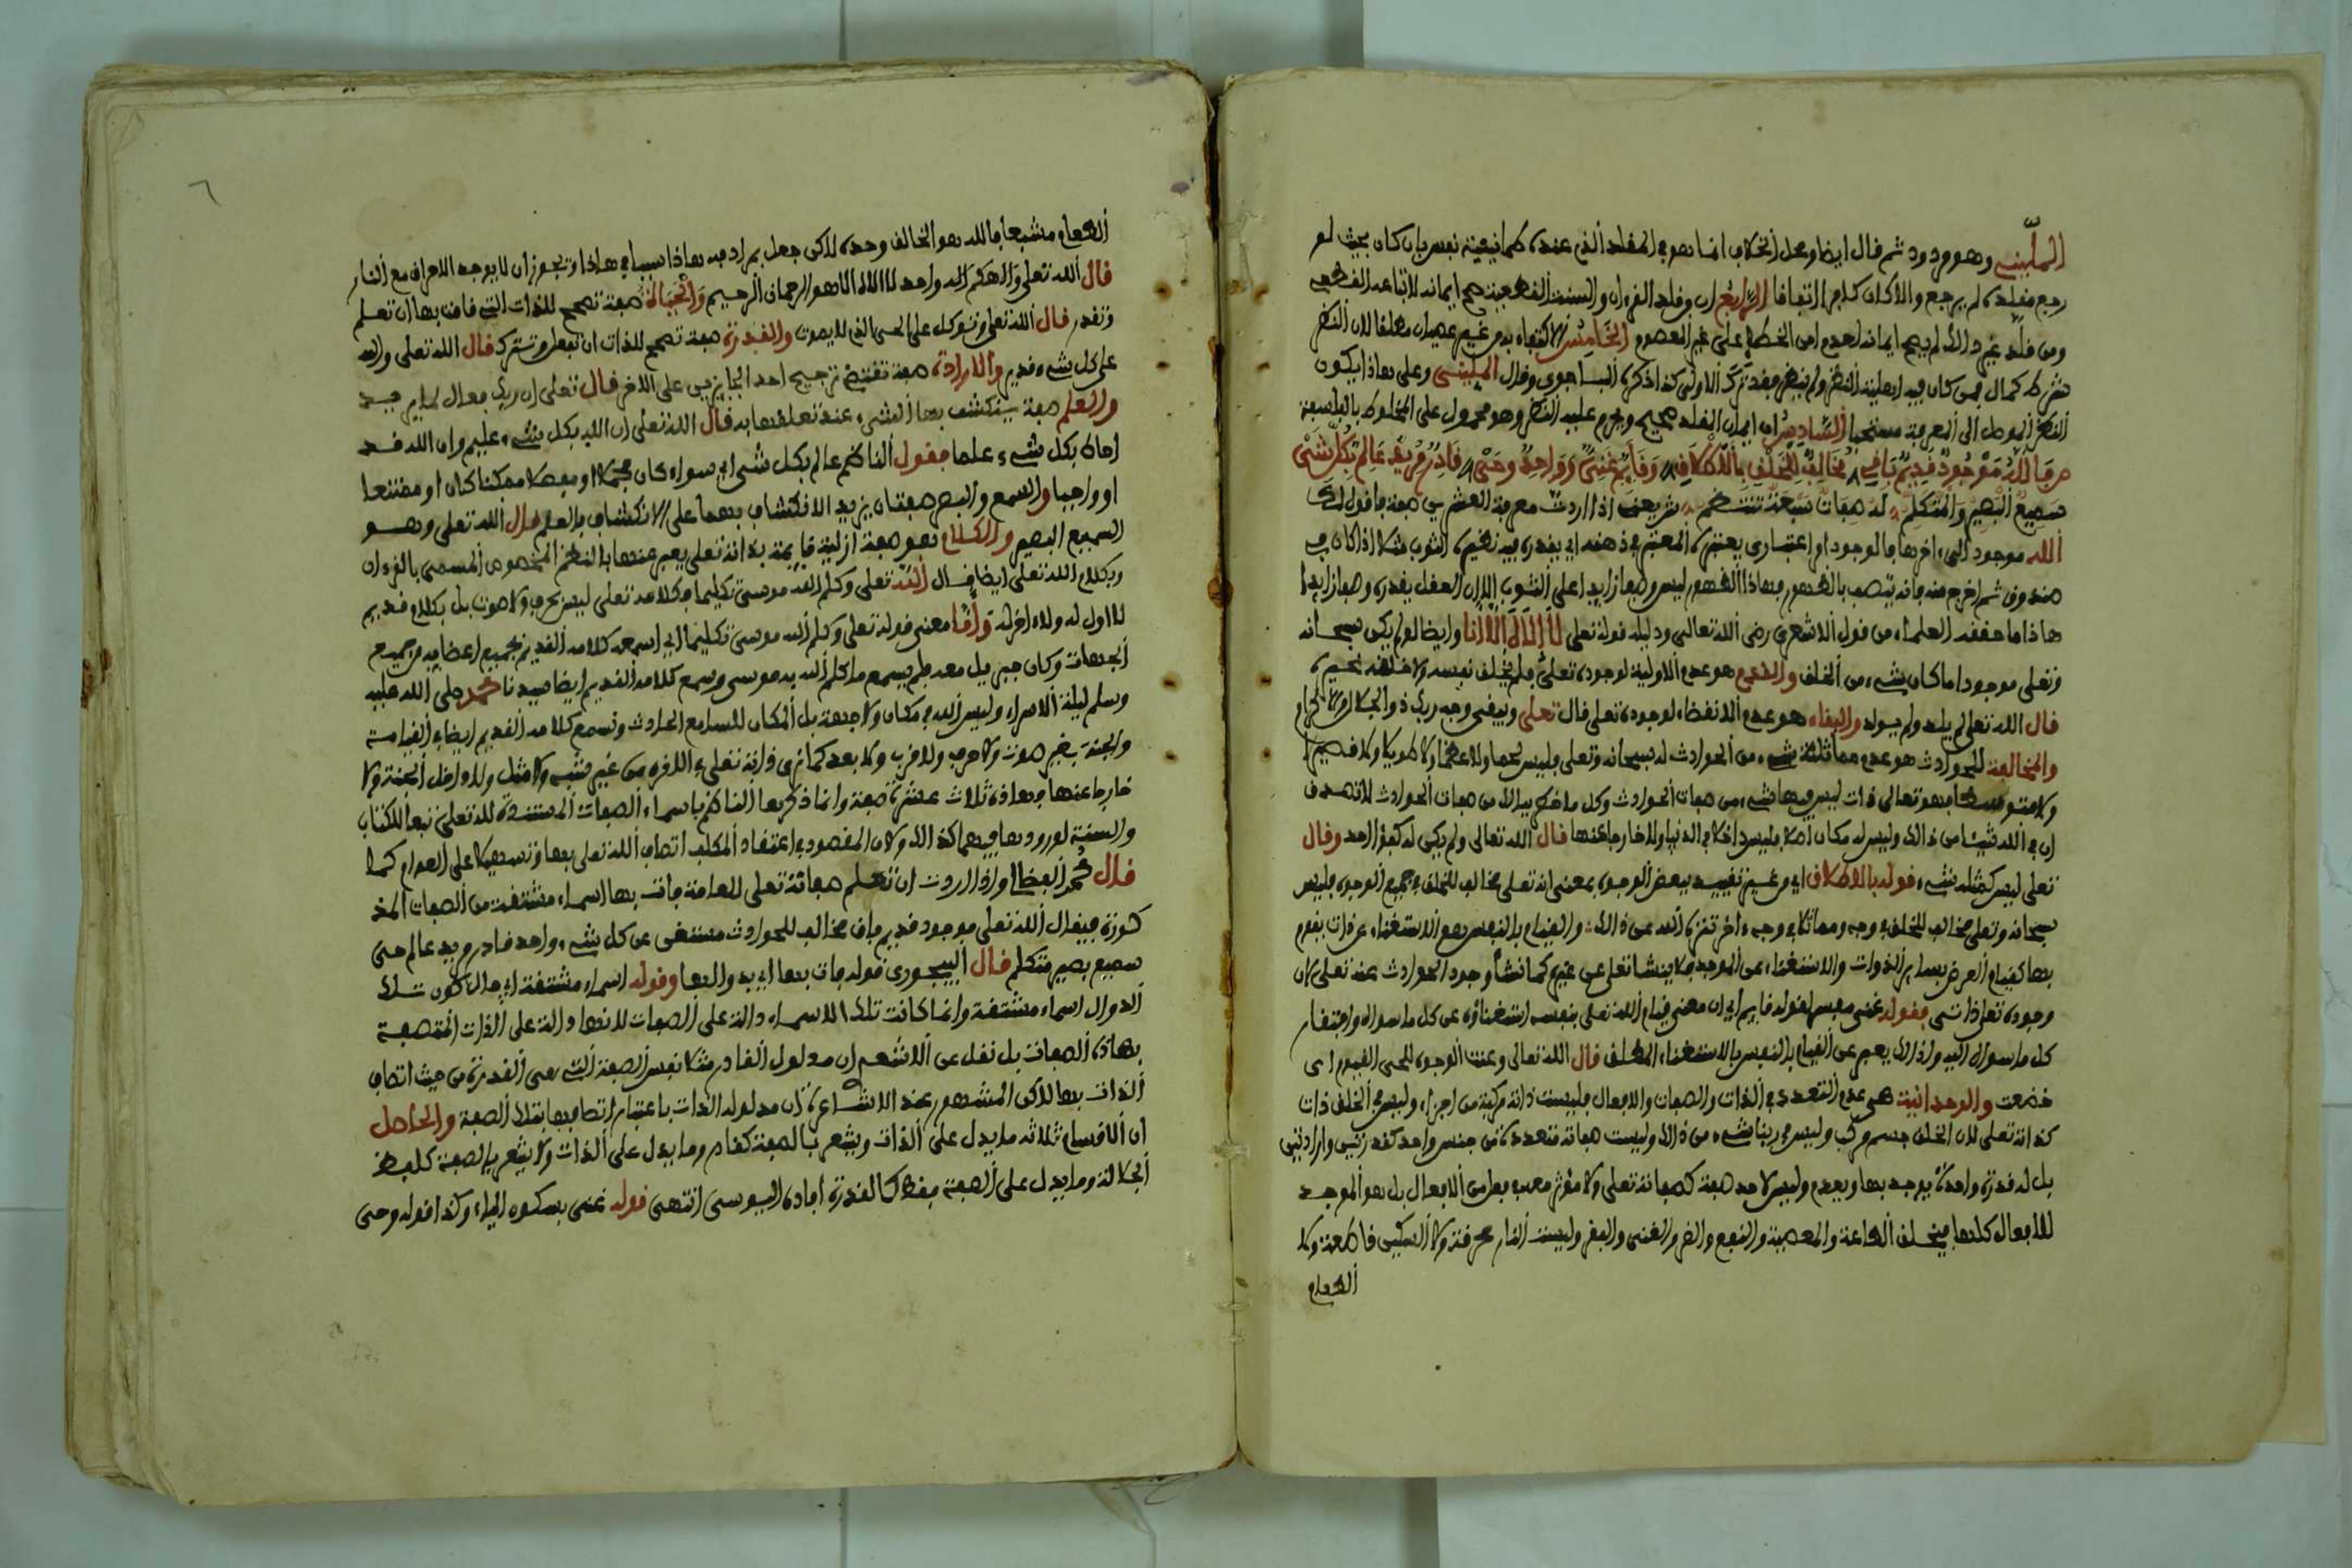 الملّيتي وهو مردود ثم قال ايضا ومحل الخلاف انما هو في المقلد الذي عنده طمانينة نفس بان كان بحيث لو
رجع مقلده لم يرجع والا كان كافرا اتفاقا الرّابع ان من قلد القرءان والسنة القطعية صح ايمانه لاتباعه القطعي
ومن قلد غير ذالك لم يصح ايمانه لعدم امن الخطإ على غير المعصوم الخامس الاكتفاء به من غير عصيان مطلقا لان النظر
شرط كمال فمن كان فيه اهلية النظر ولم ينظر فقد ترك الاولى كذا ذكره البيجوري وقال المليتي وعلى هاذا يكون
النظر الموصل الى المعرفة مستحبا السّادس ان ايمان المقلد صحيح ويحرم عليه النظر وهو محمول على المخلوط بالفلسفة
ص فَاللّٰهُ مَوْجُودٌ قَدِيمٌ بَاقِي مُخَالِفٌ لِلْخَلْقِ بِالْإِطْلَاقِ وَقَائِمٌ غَنِيٌّ وَوَاحِدٌ وَحَيّْ قَادِرْ مُرِيدٌ عَالِمٌ بِكُلِّ شَيْ
سَمِيعٌ الْبَصِيرُ وَالْمُتَكَلِّمْ لَهُ صِفَاتٌ سَبْعَةٌ تَنْتَظِمْ ش يعني اذا اردت معرفة العشرين صفة فاقول لك
الله موجود الى ءاخرها فالوجود امر اعتباري يعتبره المعتبر في ذهنه اي يقدره فيه نظيره الثوب مثلا اذا كان في
صندوق ثم اخرج منه فانه يتصف بالظهور فهاذا الظهور ليس وصفا زايدا على الثوب الا ان العقل يقدره وصفا زايدا
هاذا ما حققه العلماء من قول الاشعري رضي الله تعالى ودليله قوله تعلى لا إله إلا أنا وايضا لو لم يكن سبحانه
وتعلى موجودا ما كان شيء من الخلق والقدم هو عدم الاولية لوجوده تعلى فلم يخلق نفسه ولا خلقه غيره
قال الله تعالى لم يلد ولم يولد والبقاء هو عدم الانقضاء لوجوده تعلى قال تعلى ويبقى وجه ربك ذو الجلال والاكرام
والمخالفة للحوادث هو عدم مماثلة شيء من الحوادث له سبحانه وتعلى فليس لحما ولا عظما ولا طويلا ولا قصيرا
ولا متوسطا فهو تعالى ذات ليس فيها شيء من صفات الحوادث وكل ما خطر ببالك من صفات الحوادث لا تصدق
ان في الله شيئا من ذالك وليس له مكان اصلا فليس داخلا في الدنيا ولا خارجا عنها قال الله تعالى ولم يكن له كفؤا احد وقال
تعلى ليس كمثله شيء قوله بالاطلاق اي من غير تقييد ببعض الوجوه بمعنى انه تعلى مخالف للخلق في جميع الوجوه فليس
سبحانه وتعلى مخالف للخلق في وجه ومماثلا في وجه ءاخر تنزه الله عن ذالك والقيام بالنفس هو الاستغناء عن ذات يقوم
بها كقيام العرض بساير الذوات والاستغناء عن الموجد فلا ينشا تعلى عن غيره كما نشأ وجود الحوادث عنه تعلى لان
وجوده تعلى ذاتي فقوله غني مفسر لقوله قايم اي ان معنى قيام الله تعلى بنفسه استغناؤه عن كل ما سواه وافتقار
كل ما سواه اليه ولذالك يعبر عن القيام بالنفس بالاستغناء المطلق قال الله تعالى وعنت الوجوه للحي القيوم اي
خضعت والوحدانية هي عدم التعدد في الذات والصفات والافعال فليست ذاته مركبة من اجزاء وليس في الخلق ذات
كذاته تعلى لان الخلق جسم مركب وليس في ربنا شيء من ذالك وليست صفاته متعددة من جنس واحد كقدرتين وارادتين
بل له قدرة واحدة يوجد بها ويعدم وليس لاحد صفة كصفاته تعلى ولا مؤثر معه في فعل من الافعال بل هو الموجد
للافعال كلها فيخلق الطاعة والمعصية والنفع والضر والغنى والفقر وليست النار محرقة ولا السكين قاطعة ولا
الطعام
الطعام مشبعا فالله هو الخالق وحده لاكن جعل بمراده هاذا سببا في هاذا ويجوز ان لا يوجد الاحراق مع النار
قال الله تعلى والهكم اله واحد لا اله الا هو الرحمان الرحيم والحياة صفة تصحح للذات التي قامت بها أن تعلم
وتقدر قال الله تعلى وتوكل على الحي الذي لا يموت والقدرة صفة تصحح للذات ان تفعل وتترك قال الله تعلى والله
على كل شيء قدير والارادة صفة تقتضي ترجيح احد الجايزين على الاخر قال تعلى ان ربك فعال لما يريد
والعلم صفة ينكشف بها الشيء عند تعلقها به قال الله تعلى ان الله بكل شيء عليم وان الله قد
احاط بكل شيء علما فقول الناظم عالم بكل شي اي سواء كان مجملا او مفصلا ممكنا كان او ممتنعا
او واجبا والسمع والبصر صفتان يزيد الانكشاف بهما على الانكشاف بالعلم قال الله تعلى وهو
السميع البصير والكلام هو صفة ازلية قايمة بذاته تعلى يعبر عنها بالنظم المخصوص المسمى بالقرءان
وبكلام الله تعلى ايضا قال الله تعلى وكلم الله موسى تكليما فكلامه تعلى ليس بحرف ولا صوت بل بكلام قديم
لا اول له ولا ءاخر له وأمّا معنى قوله تعلى وكلم الله موسى تكليما اي اسمعه كلامه القديم بجميع اعضايه من جميع
الجهات وكان جبريل معه فلم يسمع ما كلم الله به موسى وسمع كلامه القديم ايضا سيدنا محمد صلى الله عليه
وسلم ليلة الاسراء وليس الله في مكان ولا جهة بل المكان للسامع الحادث وتسمع كلامه القديم ايضا في القيامة
والجنة بغير صوت ولا حرف ولا قرب ولا بعد كما نرى ذاته تعلى في الاخرة من غير شبه ولا مثل ولا داخل الجنة ولا
خارجا عنها فهاذه ثلاث عشرة صفة وانما ذكرها الناظم باسماء الصفات المستندة لله تعلى تبعا للكتاب
والسنة لورودها فيهما كذالك ولان المقصود في اعتقاد المكلف اتصاف الله تعلى بها وتسهيلا على العوام كما
قال محمد الفضالي واذا اردت ان تعلم صفاته تعلى للعامة فات بها اسماء مشتقة من الصفات المذ
كورة فيقال الله تعلى موجود قديم باق مخالف للحوادث مستغن عن كل شيء واحد قادر مريد عالم حي
سميع بصير متكلم قال البيجوري قوله فات بها اي بدوالها وقوله اسماء مشتقة اي حال كون تلك
الدوال اسماء مشتقة وانما كانت تلك الاسماء دالة على الصفات لانها دالة على الذات المتصفة
بهاذه الصفات بل نقل عن الاشعري ان مدلول القادر مثلا نفس الصفة التي هي القدرة من حيث اتصاف
الذات بها لاكن المشهور عند الاشاعرة ان مدلوله الذات باعتبار اتصافها بتلك الصفة والحاصل
ان الاقسام ثلاثة ما يدل على الذات ويشعر بالصفة كقادر وما يدل على الذات ولا يشعر بالصفة كلفظ
الجلالة وما يدل على الصفة فقط كالقدرة افاده اليوسي انتهى قوله غني بسكون الياء وكذا قوله وحي